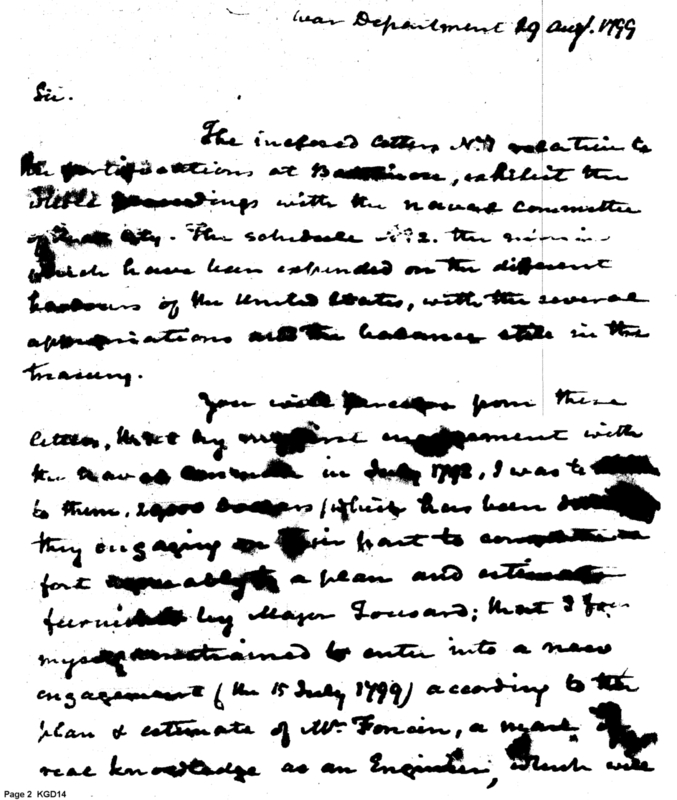 War Department 29 Augt. 1799
Sir.
The inclosed letters No. 1 relative to
the fortifications at Baltimore, exhibit the
whole proceedings with the naval committee
of that City. The schedule No. 2. the monies
which have been expended on the different
harbours of the United States, with the several
appropriations and the balances still in the
treasury.
You will perceive from these
letters, that by my first engagement with
the naval committee in July 1798, I was to
to them, 20,000 Dollars (which has been
they engaging on their part to complete a
fort agreeably to a plan and estimate
furnished by Major Tousard; that I found
myself constrained to enter into a new
engagement (the 15 July 1799) according to the
plan & estimate of Mr. Foncin, a man of
real knowledge as an Engineer, which will
Page 2 KGD14